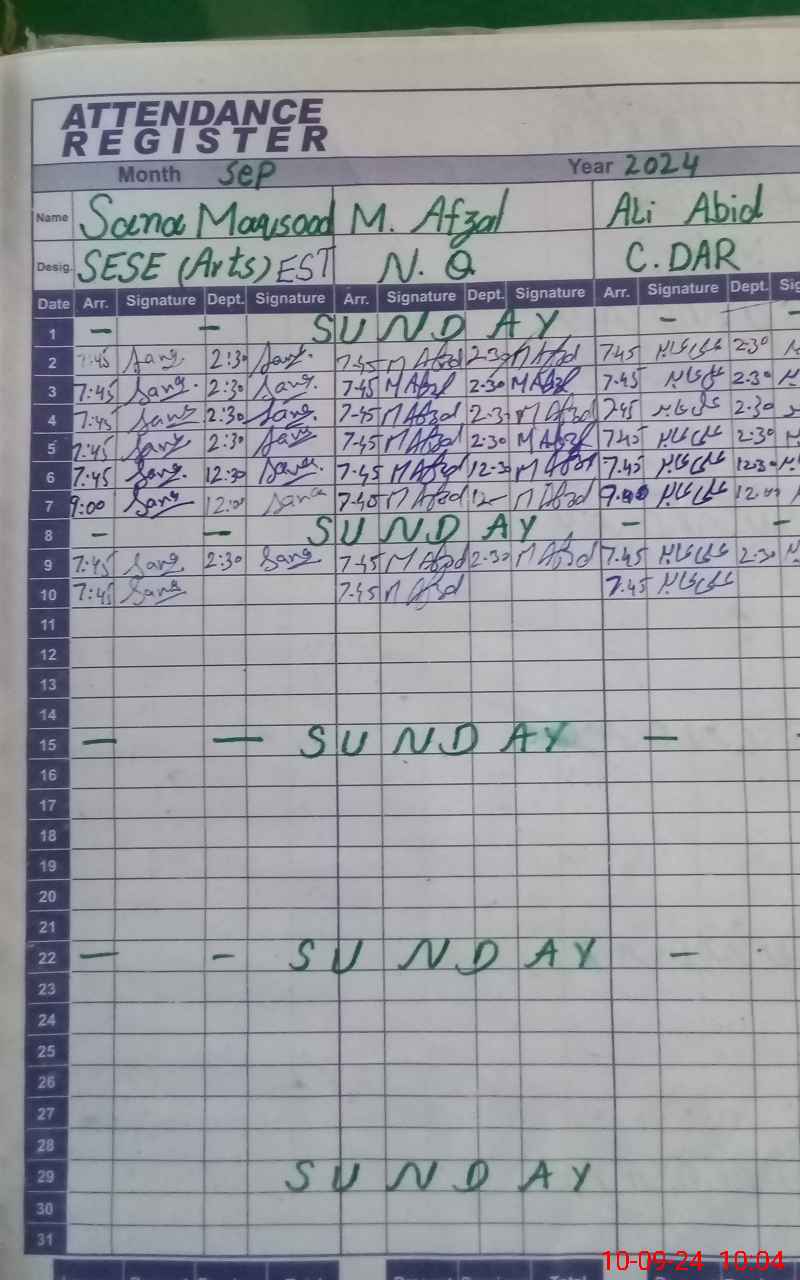 ATTENDANCE
REGISTER
Month Sep Year 2024
Name Sana Maqsood M. Afzal Ali Abid
Desig. SESE (Arts) EST N. Q C. DAR
Date Arr. Signature Dept. Signature Arr. Signature Dept. Signature Arr. Signature Dept. Sig
1 — — SUNDAY —
2 7:45 Sana 2:30 Sana 7-45 M Afzal 2-30 M Afzal 7-45 2-30
3 7:45 Sana 2:30 Sana 7-45 M Afzal 2-30 M Afzal 7-45 2-30
4 7:45 Sana 2:30 Sana 7-45 M Afzal 2-30 M Afzal 7-45 2-30
5 7:45 Sana 2:30 Sana 7-45 M Afzal 2-30 M Afzal 7-45 2-30
6 7:45 Sana 12:30 Sana 7-45 M Afzal 12-30 M Afzal 7-45 12-30
7 9:00 Sana 12:00 Sana M Afzal 12— M Afzal 12-00
8 — — SUNDAY — —
9 7:45 Sana 2:30 Sana 7-45 M Afzal 2-30 M Afzal 7-45 2-30
10 7:45 Sana 7-45 M Afzal 7-45
11
12
13
14
15 — — SUNDAY — -
16
17
18
19
20
21
22 — - SUNDAY —
23
24
25
26
27
28
29 SUNDAY
30
31
10-09-24 10:04